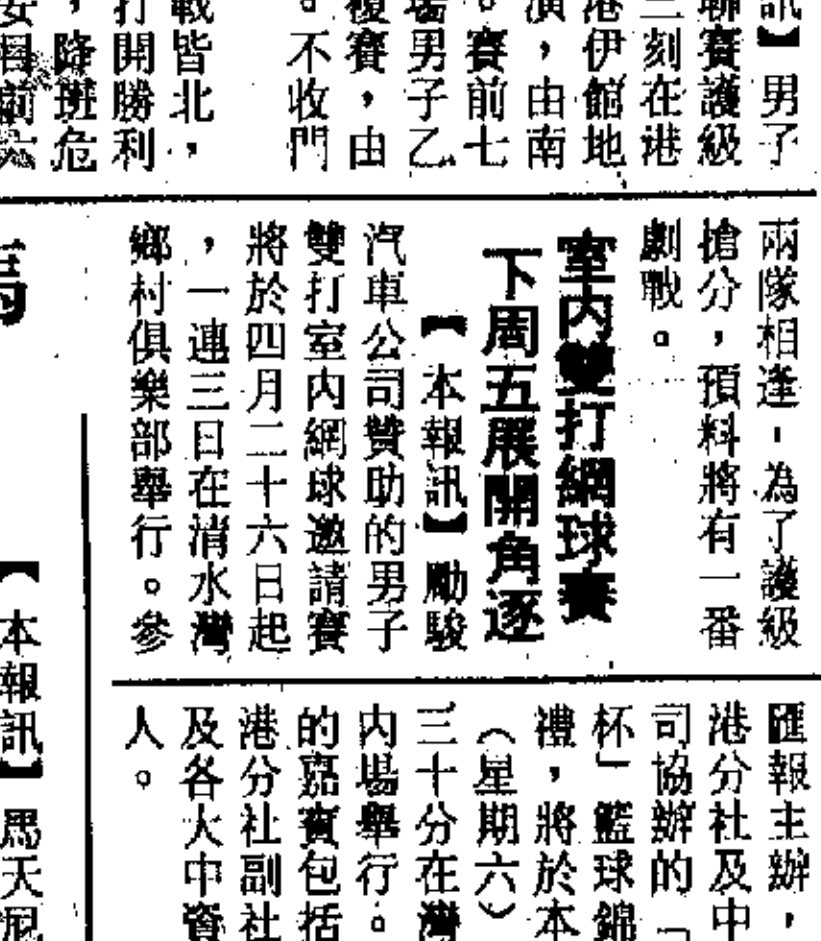 訊】男子
聯賽護級
三刻在港
港伊館地
演，由南
。賽前七
場男子乙
複賽，由
。不收門
戰皆北，
打開勝利
，降班危
目前六
兩隊相逢，為了護級
搶分，預料將有一番
劇戰。
室內雙打網球賽
下周五展開角逐
【本報訊】勵駿
汽車公司贊助的男子
雙打室內網球邀請賽
將於四月二十六日起
，一連三日在清水灣
鄉村俱樂部舉行。參
匯報主辦，
港分社及中
司協辦的「
杯」籃球錦
禮，將於本
（星期六）
三十分在灣
內場舉行。
的嘉賓包括
港分社副社
及各大中資
人。
【本報訊】馬天尼